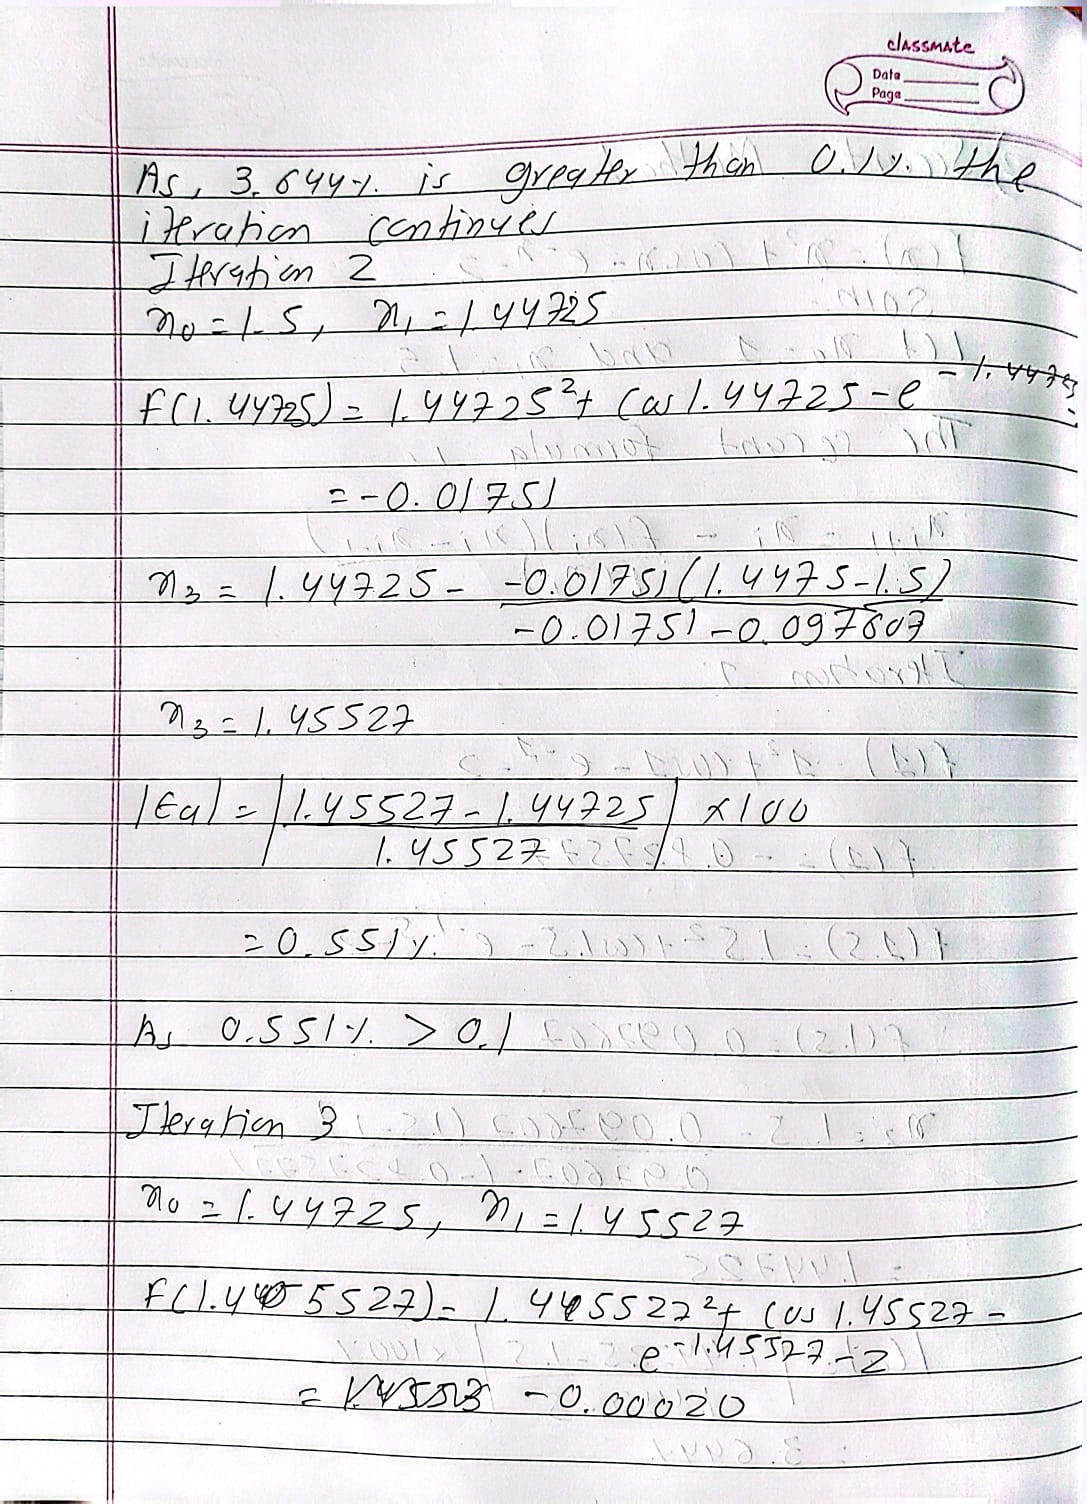 classmate
Date
Page
As, 3.644%. is greater than 0.1%. the
iteration continues
Iteration 2
x0 = 1.5, x1 = 1.44725
f(1.44725) = 1.44725² + Cos 1.44725 - e^-1.4472
= -0.01751
x3 = 1.44725 - -0.01751(1.4475-1.5)
-0.01751-0.097607
x3 = 1.45527
|Ea| = |1.45527 - 1.44725| x100
1.45527
= 0.551%.
As 0.551%. > 0.1
Iteration 3
x0 = 1.44725, x1 = 1.45527
f(1.45527) = 1.445527² + cos 1.45527 -
e^-1.45527 - 2
= -0.00020